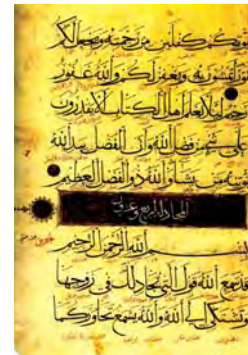 يؤتكم كفلين من رحمته ويجعل لكم
نورا تمشون به ويغفر لكم والله غفور
رحيم لئلا يعلم اهل الكتاب الا يقدرون
على شيء من فضل الله وان الفضل بيد الله
يؤتيه من يشاء والله ذو الفضل العظيم
المجادلة
بسم الله الرحمن الرحيم
قد سمع الله قول التي تجادلك في زوجها
وتشتكي الى الله والله يسمع تحاوركما